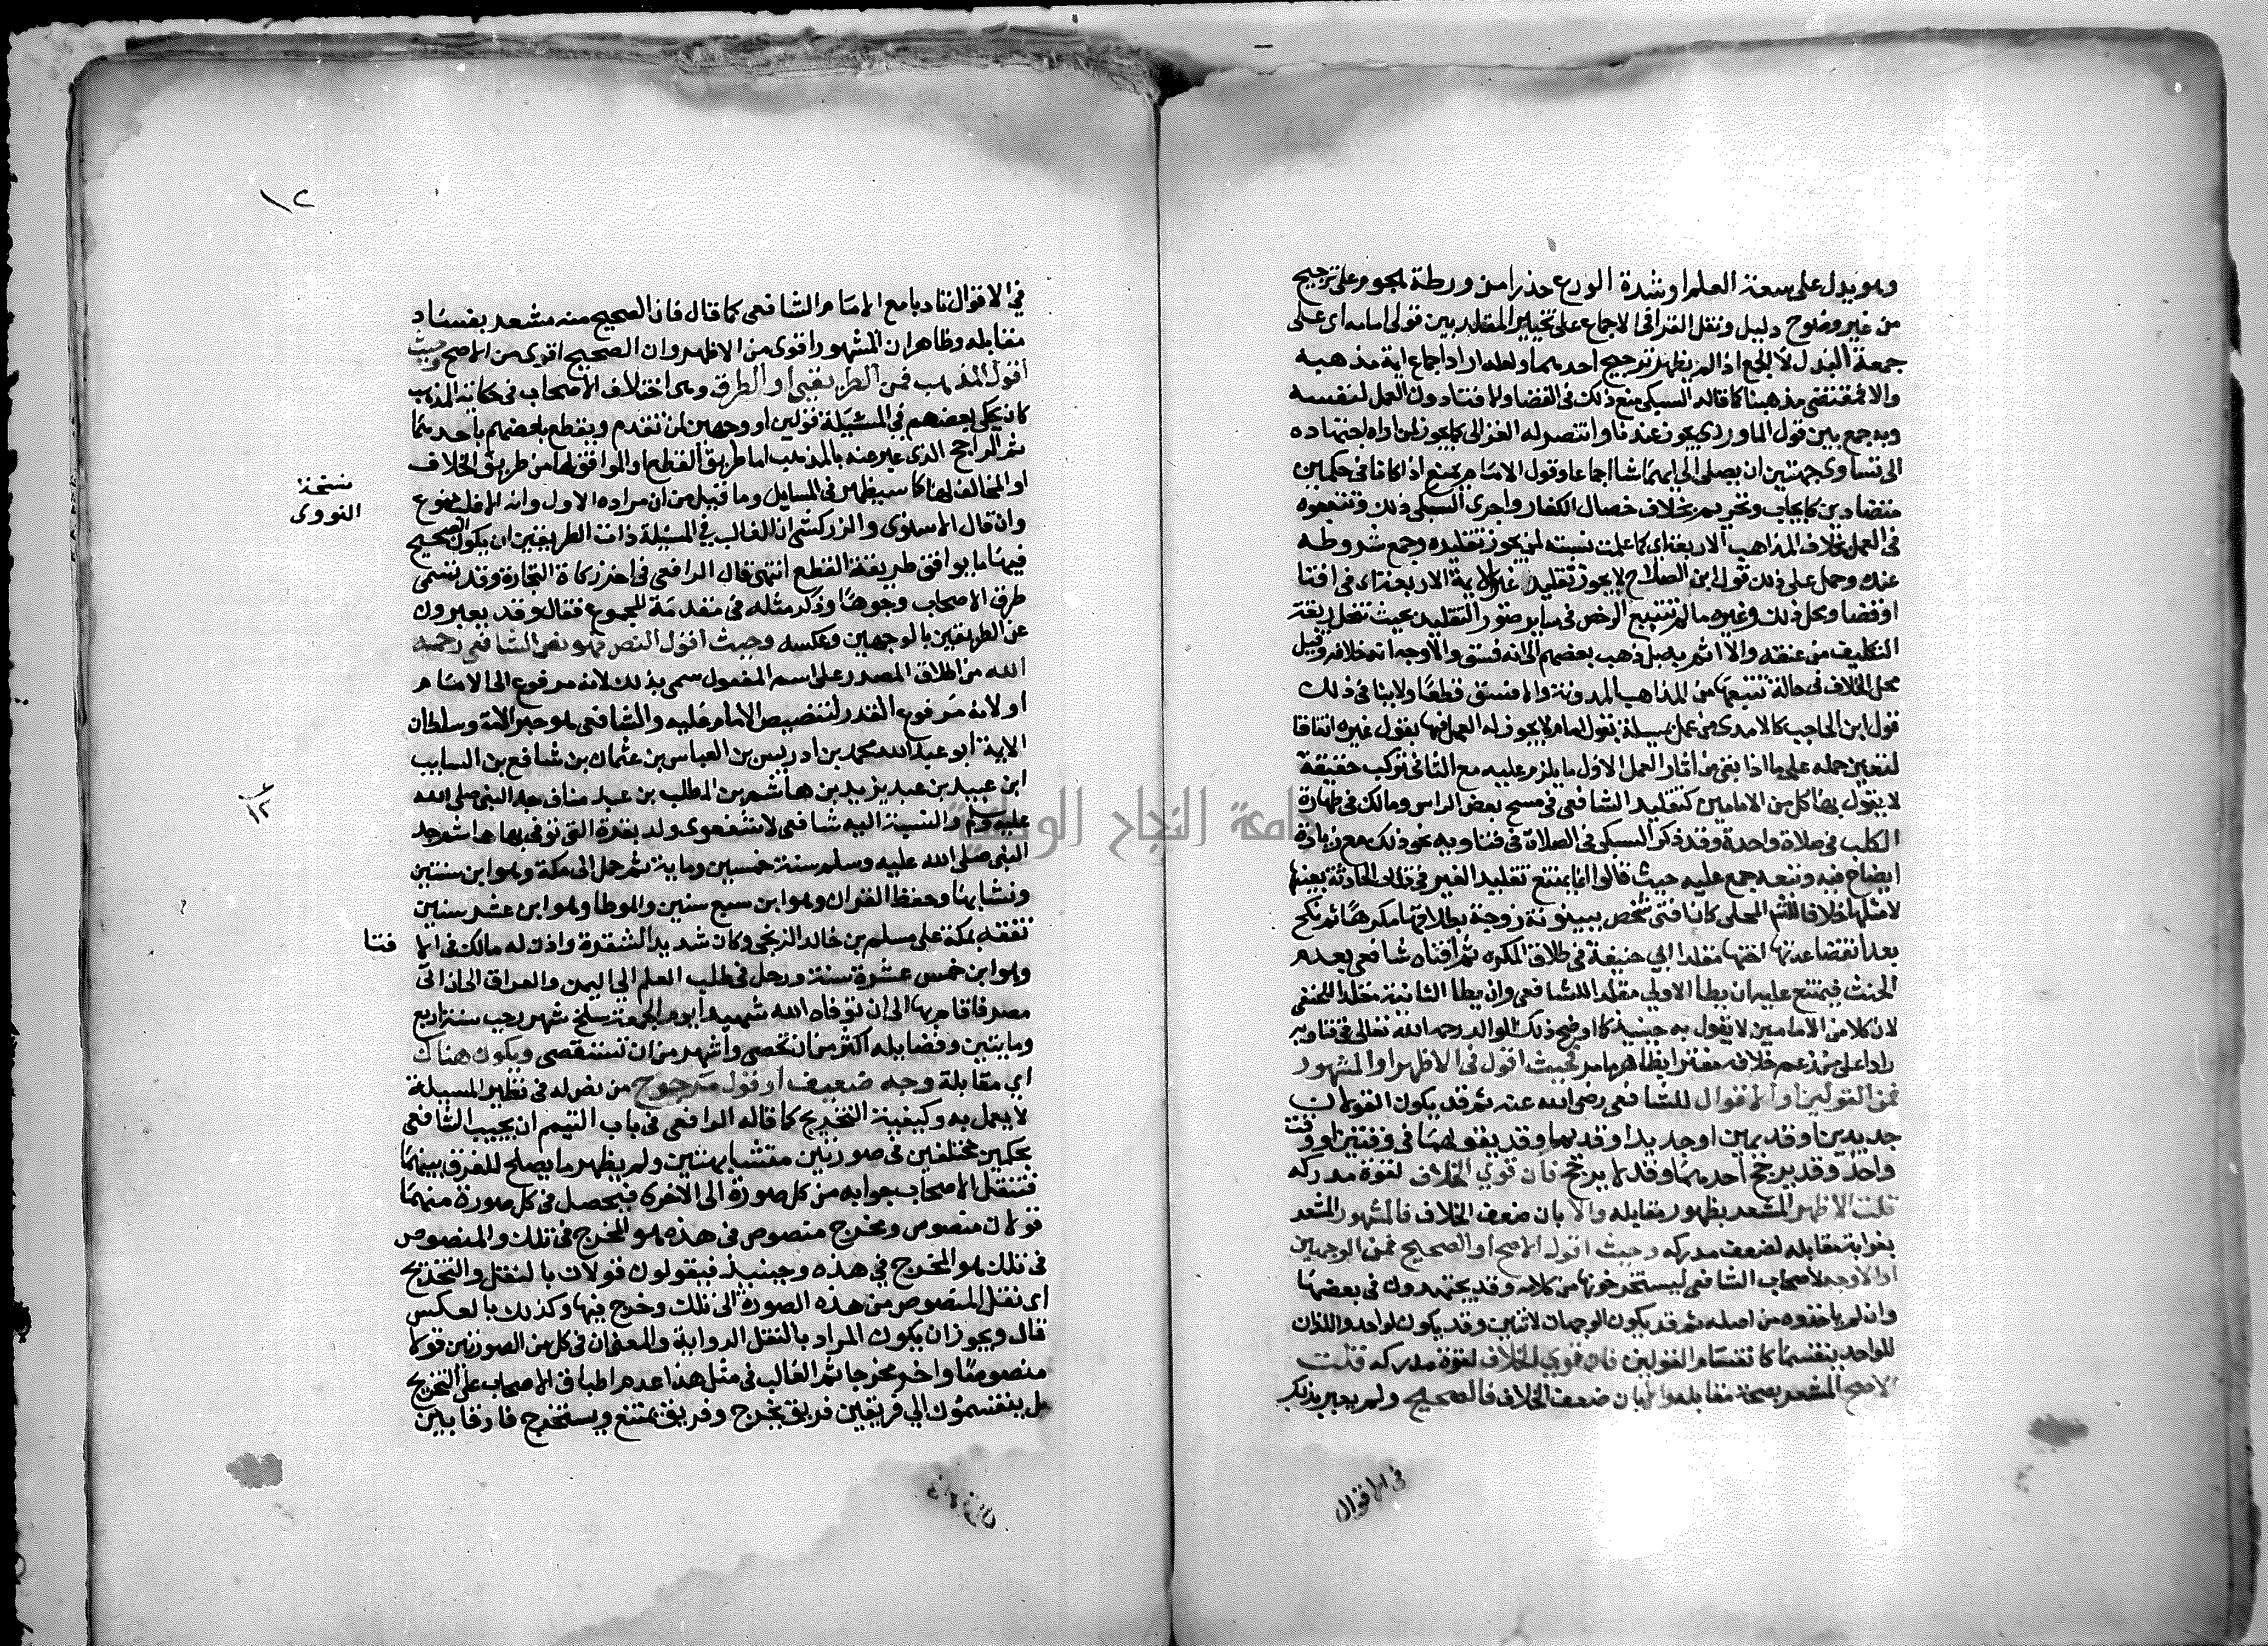 وهو يدل على سعة العلم او شدة الورع حذرا من ورطة هجوم على ترجيح
من غير وضوح دليل ونقل القرافي الاجماع على تخيير المقلد بين قولي امامه اي على
جهة البدل لا الجمع اذا لم يظهر ترجيح احدهما ولعله اراد اجماع ايمة مذهبه
والا فمقتضى مذهبنا كما قاله السبكي منع ذلك في القضا والافتا دون العمل لنفسه
وبه يجمع بين قول الماوردي يجوز عندنا وانتصر له الغزالي كما يجوز لمن اداه اجتهاده
الى تساوي جهتين ان يصلي الى ايهما شا اجماعا وقول الامام يمتنع اذا كانا في حكمين
متضادين كايجاب وتحريم بخلاف خصال الكفار واجرى السبكي ذلك وتبعوه
في العمل بخلاف المذاهب الاربعة اي مما علمت نسبته لمن يجوز تقليده وجميع شروطه
عنده وحمل على ذلك قول ابن الصلاح لا يجوز تقليد غير الايمة الاربعة اي في افتا
او قضا ومحل ذلك وغيره ما لم يتتبع الرخص في ساير صور التقليد بحيث تنحل ربقة
التكليف من عنقه والا اثم به بل ذهب بعضهم الى انه فسق والاوجه انه خلافه وقيل
محل الخلاف في حالة تتبعها من المذاهب المدونة والا فسق قطعا ولا ينافي ذلك
قول ابن الحاجب كالامدي من عمل بمسيلة بقول امام لا يجوز له العمل فيها بقول غيره اتفاقا
لتعين حمله على ما اذا بقي من اثار العمل الاول ما يلزم عليه مع الثاني تركب حقيقة
لا يقول بها كل من الامامين كتقليد الشافعي في مسح بعض الراس ومالك في طهارة
الكلب في صلاة واحدة وقد ذكر السبكي في الصلاة في فتاويه نحو ذلك مع زيادة
ايضاح فيه وتبعه جمع عليه حيث قالوا انما يمتنع تقليد الغير في تلك الحادثة بعينها
لا مثلها خلافا للشم المحلي كان افتى شخص ببينونة زوجة بطلاقها مكرها ثم نكح
بعد انقضا عدتها اختها مقلدا ابي حنيفة في طلاق المكره ثم افتاه شافعي بعدم
الحنث فيمتنع عليه ان يطا الاولى مقلدا للشافعي وان يطا الثانية مقلدا للحنفي
لان كلا من الامامين لا يقول به حينيذ كما اوضح ذلك الوالد رحمه الله تعالى في فتاويه
رادا على من زعم خلافه مغترا بظاهر ما مر فحيث اقول في الاظهر او المشهور
فمن القولين او الاقوال للشافعي رضي الله عنه ثم قد يكون القولان
جديدين او قديمين او جديدا وقديما وقد يقولهما في وقتين او وقت
واحد وقد يرجح احدهما وقد لا يرجح فان قوي الخلاف لقوة مدركه
قلت الاظهر المشعر بظهور مقابله والا بان ضعف الخلاف فالمشهور المشعر
بغرابة مقابله لضعف مدركه وحيث اقول الاصح او الصحيح فمن الوجهين
او الاوجه لاصحاب الشافعي يستخرجونها من كلامه وقد يجتهدون في بعضها
وان لم ياخذوه من اصله ثم قد يكون الوجهان لاثنين وقد يكون لواحد واللذان
للواحد ينقسما كانقسام القولين فان قوي الخلاف لقوة مدركه قلت
الاصح المشعر بصحة مقابله والا بان ضعف الخلاف فالصحيح ولم يعبر بذلك
في الاقوال
١٢
في الاقوال تادبا مع الامام الشافعي كما قال فان الصحيح منه مشعر بفساد
مقابله وظاهر ان المشهور اقوى من الاظهر وان الصحيح اقوى من الاصح وحيث
اقول المذهب فمن الطريقين او الطرق وهي اختلاف الاصحاب في حكاية المذهب
كان يحكي بعضهم في المسيلة قولين او وجهين لمن تقدم ويقطع بعضهم باحدهما
ثم الراجح الذي عبر عنه بالمذهب اما طريق القطع او الموافق لها من طريق الخلاف
او المخالف لها كما سيظهر في المسايل وما قيل من ان مراده الاول وانه الاغلب ممنوع
وان قال الاسنوي والزركشي ان الغالب في المسيلة ذات الطريقين ان يكون الصحيح
فيها ما يوافق طريقة القطع انتهى قال الرافعي في اخر زكاة التجارة وقد تسمى
طرق الاصحاب وجوها وذكر مثله في مقدمة المجموع فقال وقد يعبرون
عن الطريقين بالوجهين وعكسه وحيث اقول النص فهو نص الشافعي رحمه
الله من اطلاق المصدر على اسم المفعول سمي بذلك لانه مرفوع الى الامام
او لانه مرفوع القدر لتنصيص الامام عليه والشافعي هو حبر الامة وسلطان
الايمة ابو عبد الله محمد بن ادريس بن العباس بن عثمان بن شافع بن السايب
ابن عبيد بن عبد يزيد بن هاشم بن المطلب بن عبد مناف جد النبي صلى الله
عليه وسلم والنسبة اليه شافعي لا شفعوي ولد بغزة التي توفي بها هاشم جد
النبي صلى الله عليه وسلم سنة خمسين وماية ثم حمل الى مكة وهو ابن سنتين
ونشا بها وحفظ القران وهو ابن سبع سنين والموطا وهو ابن عشر سنين
تفقه بمكة على مسلم بن خالد الزنجي وكان شديد الشقرة واذن له مالك في الا فتا
وهو ابن خمس عشرة سنة ورحل في طلب العلم الى اليمن والعراق الى ان اتى
مصر فاقام بها الى ان توفاه الله شهيدا يوم الجمعة سلخ شهر رجب سنة اربع
ومايتين وفضايله اكثر من ان تحصى واشهر من ان تستقصى ويكون هناك
اي مقابلة وجه ضعيف او قول مخرج من نص له في نظير المسيلة
لا يعمل به وكيفية التخريج كما قاله الرافعي في باب التيمم ان يجيب الشافعي
بحكمين مختلفين في صورتين متشابهتين ولم يظهر ما يصلح للفرق بينهما
فتنقل الاصحاب جوابه من كل صورة الى الاخرى فيحصل في كل صورة منهما
قولان منصوص ومخرج منصوص في هذه هو المخرج في تلك والمنصوص
في تلك هو المخرج في هذه وحينيذ فيقولون قولان بالنقل والتخريج
اي نقل المنصوص من هذه الصورة الى تلك وخرج فيها وكذلك بالعكس
قال ويجوز ان يكون المراد بالنقل الرواية والمعنى ان في كل من الصورتين قولا
منصوصا واخر مخرجا ثم الغالب في مثل هذا عدم اطباق الاصحاب على التخريج
بل ينقسمون الى فريقين فريق يخرج وفريق يمتنع ويستخرج فارقا بين
نسخة
النووي
جامعة النجاح الوطنية